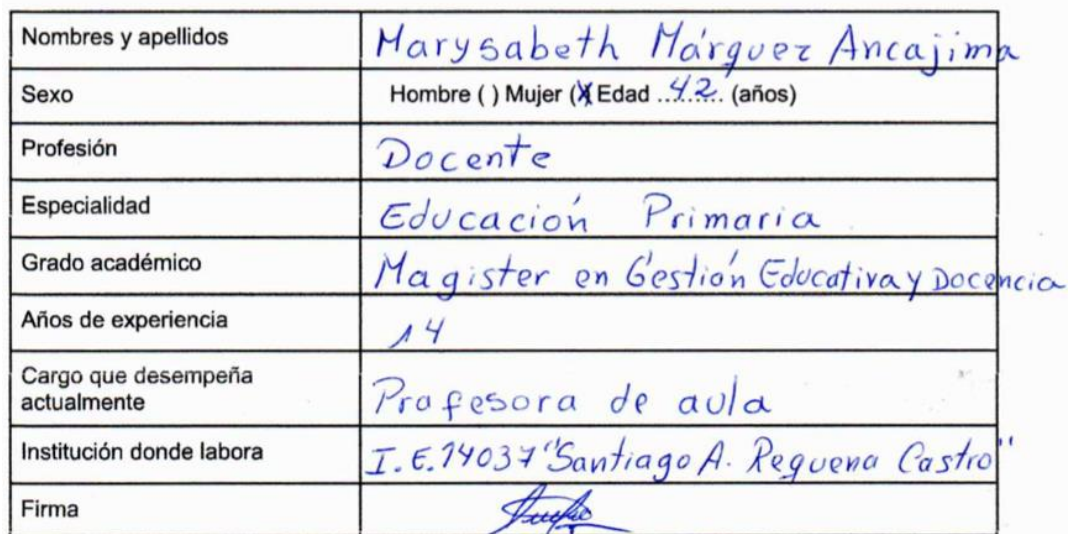 Nombres y apellidos Marysabeth Márquez Ancajima
Sexo Hombre ( ) Mujer (X) Edad ..42.. (años)
Profesión Docente
Especialidad Educación Primaria
Grado académico Magister en Gestión Educativa y Docencia
Años de experiencia 14
Cargo que desempeña
actualmente Profesora de aula
Institución donde labora I.E.14037 "Santiago A. Requena Castro"
Firma